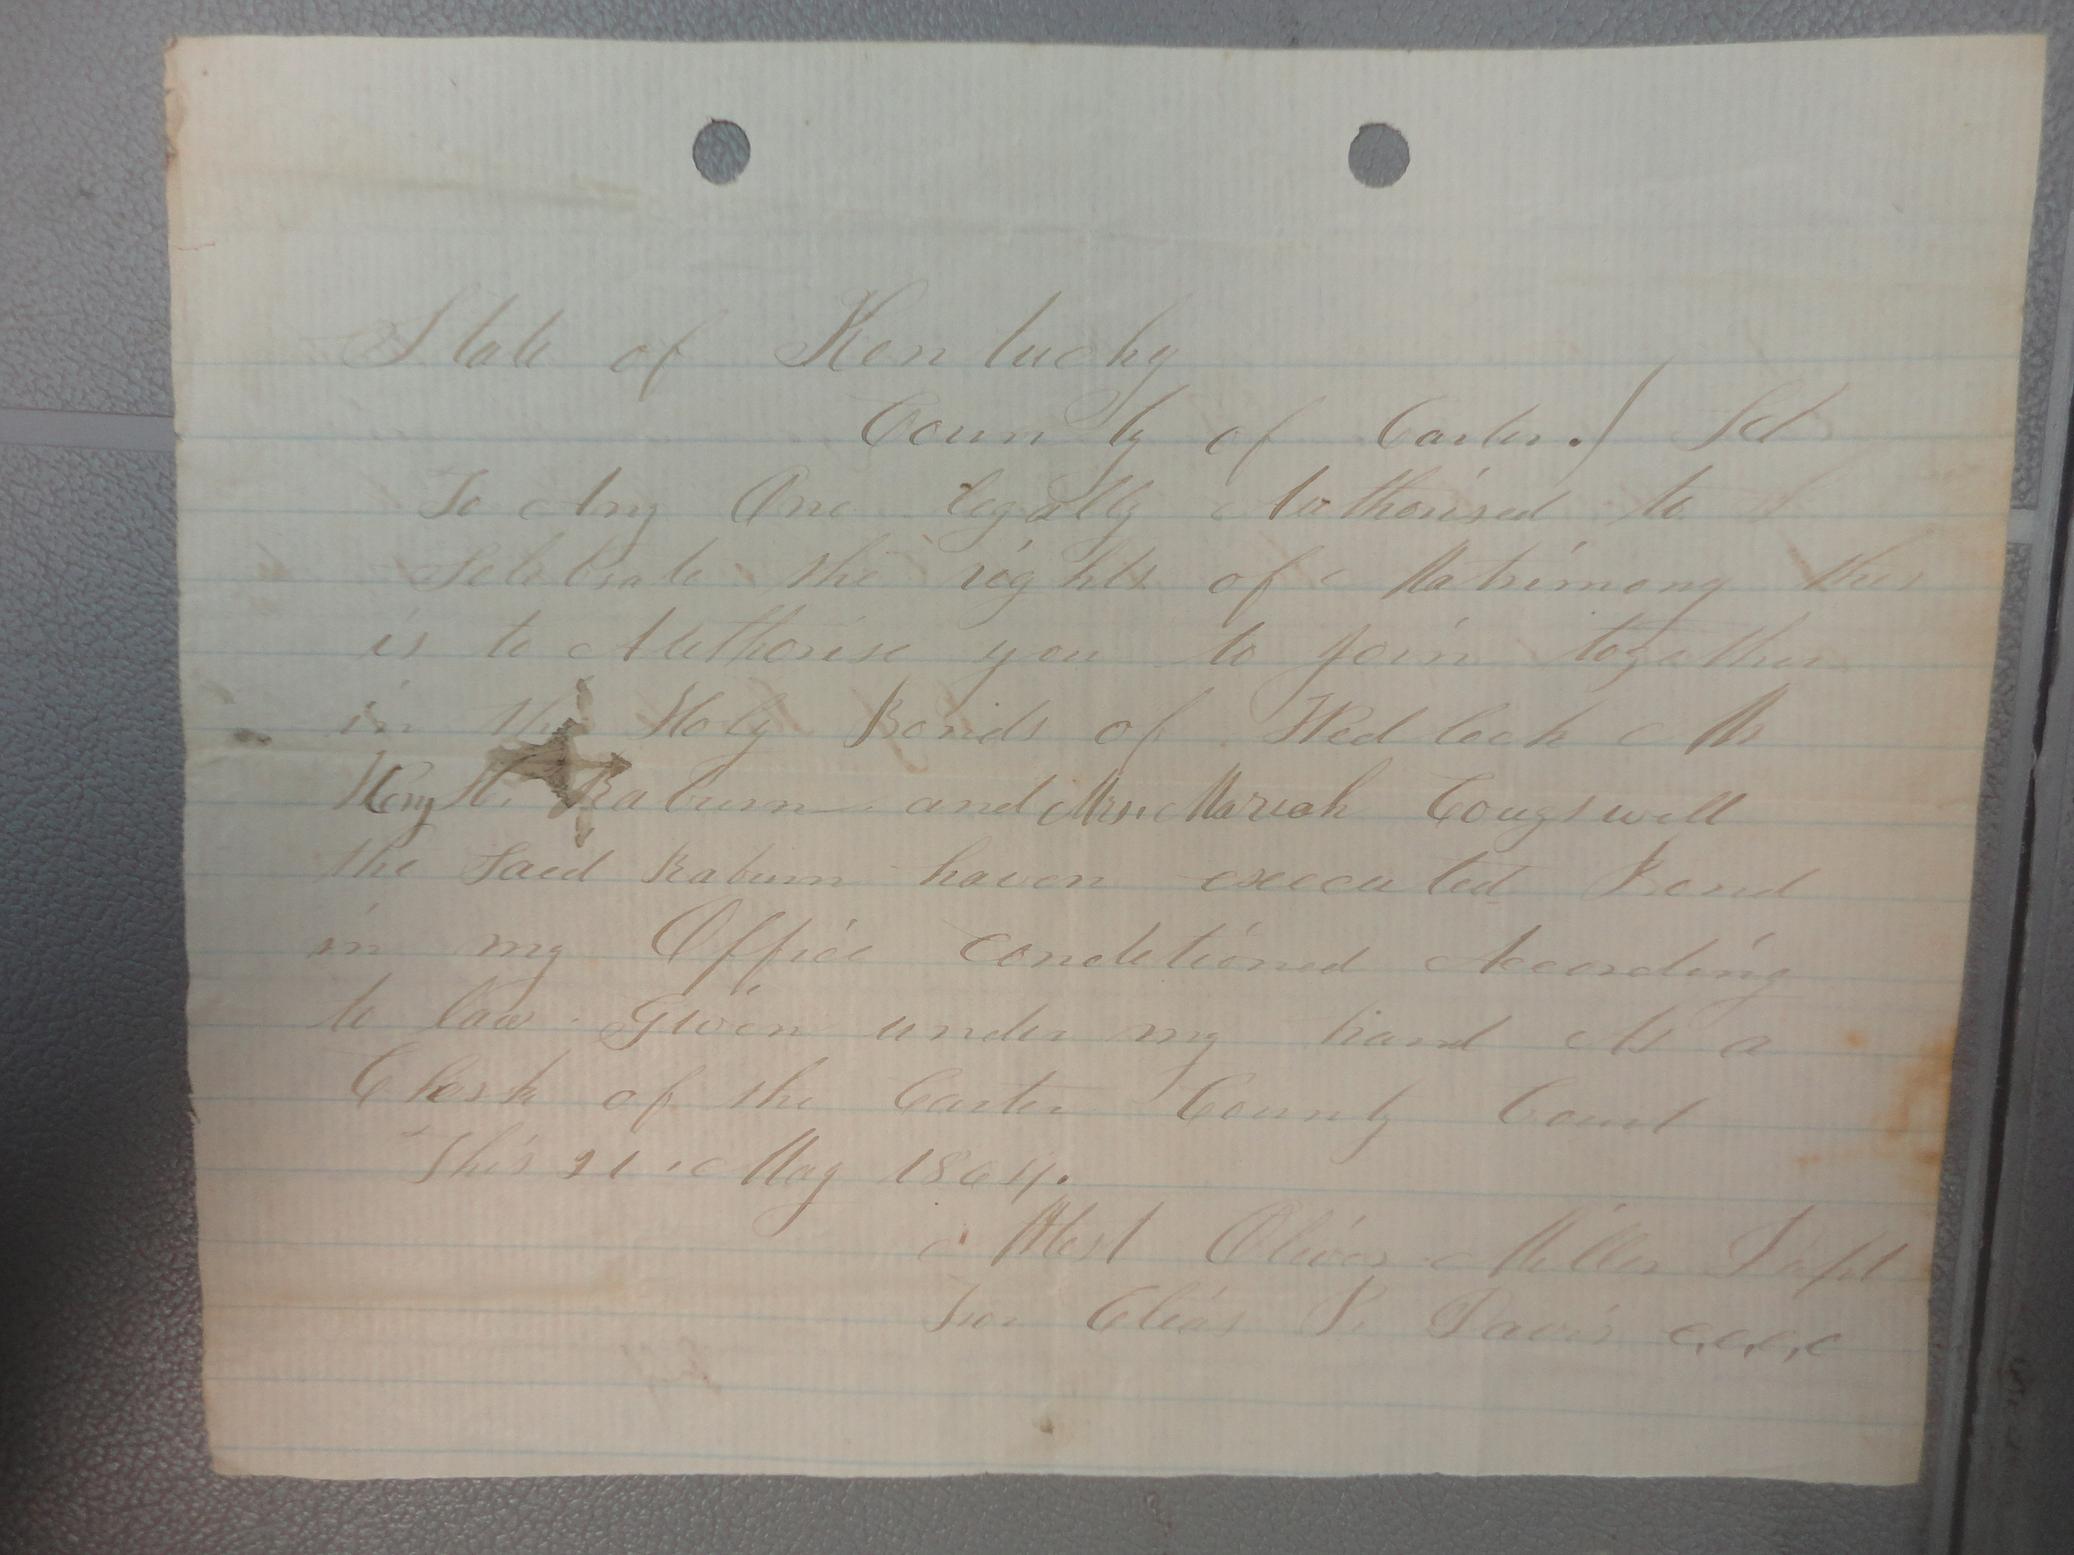 State of Kentucky
County of Carter.) Sct
To Any One legally Authorised to
Selebrate the rights of Matrimony this
is to Authorise you to join together
in the Holy Bonds of Wedlock Mr
H. Raburn and Mrs. Mariah Cougswell
the Said Raburn haven executed Bond
in my Office conditioned According
to law. Given under my hand As a
Clerk of the Carter County Court
This 21 May 1864.
Attest Oliver Miller
For Elias P. Davis C.C.C.C